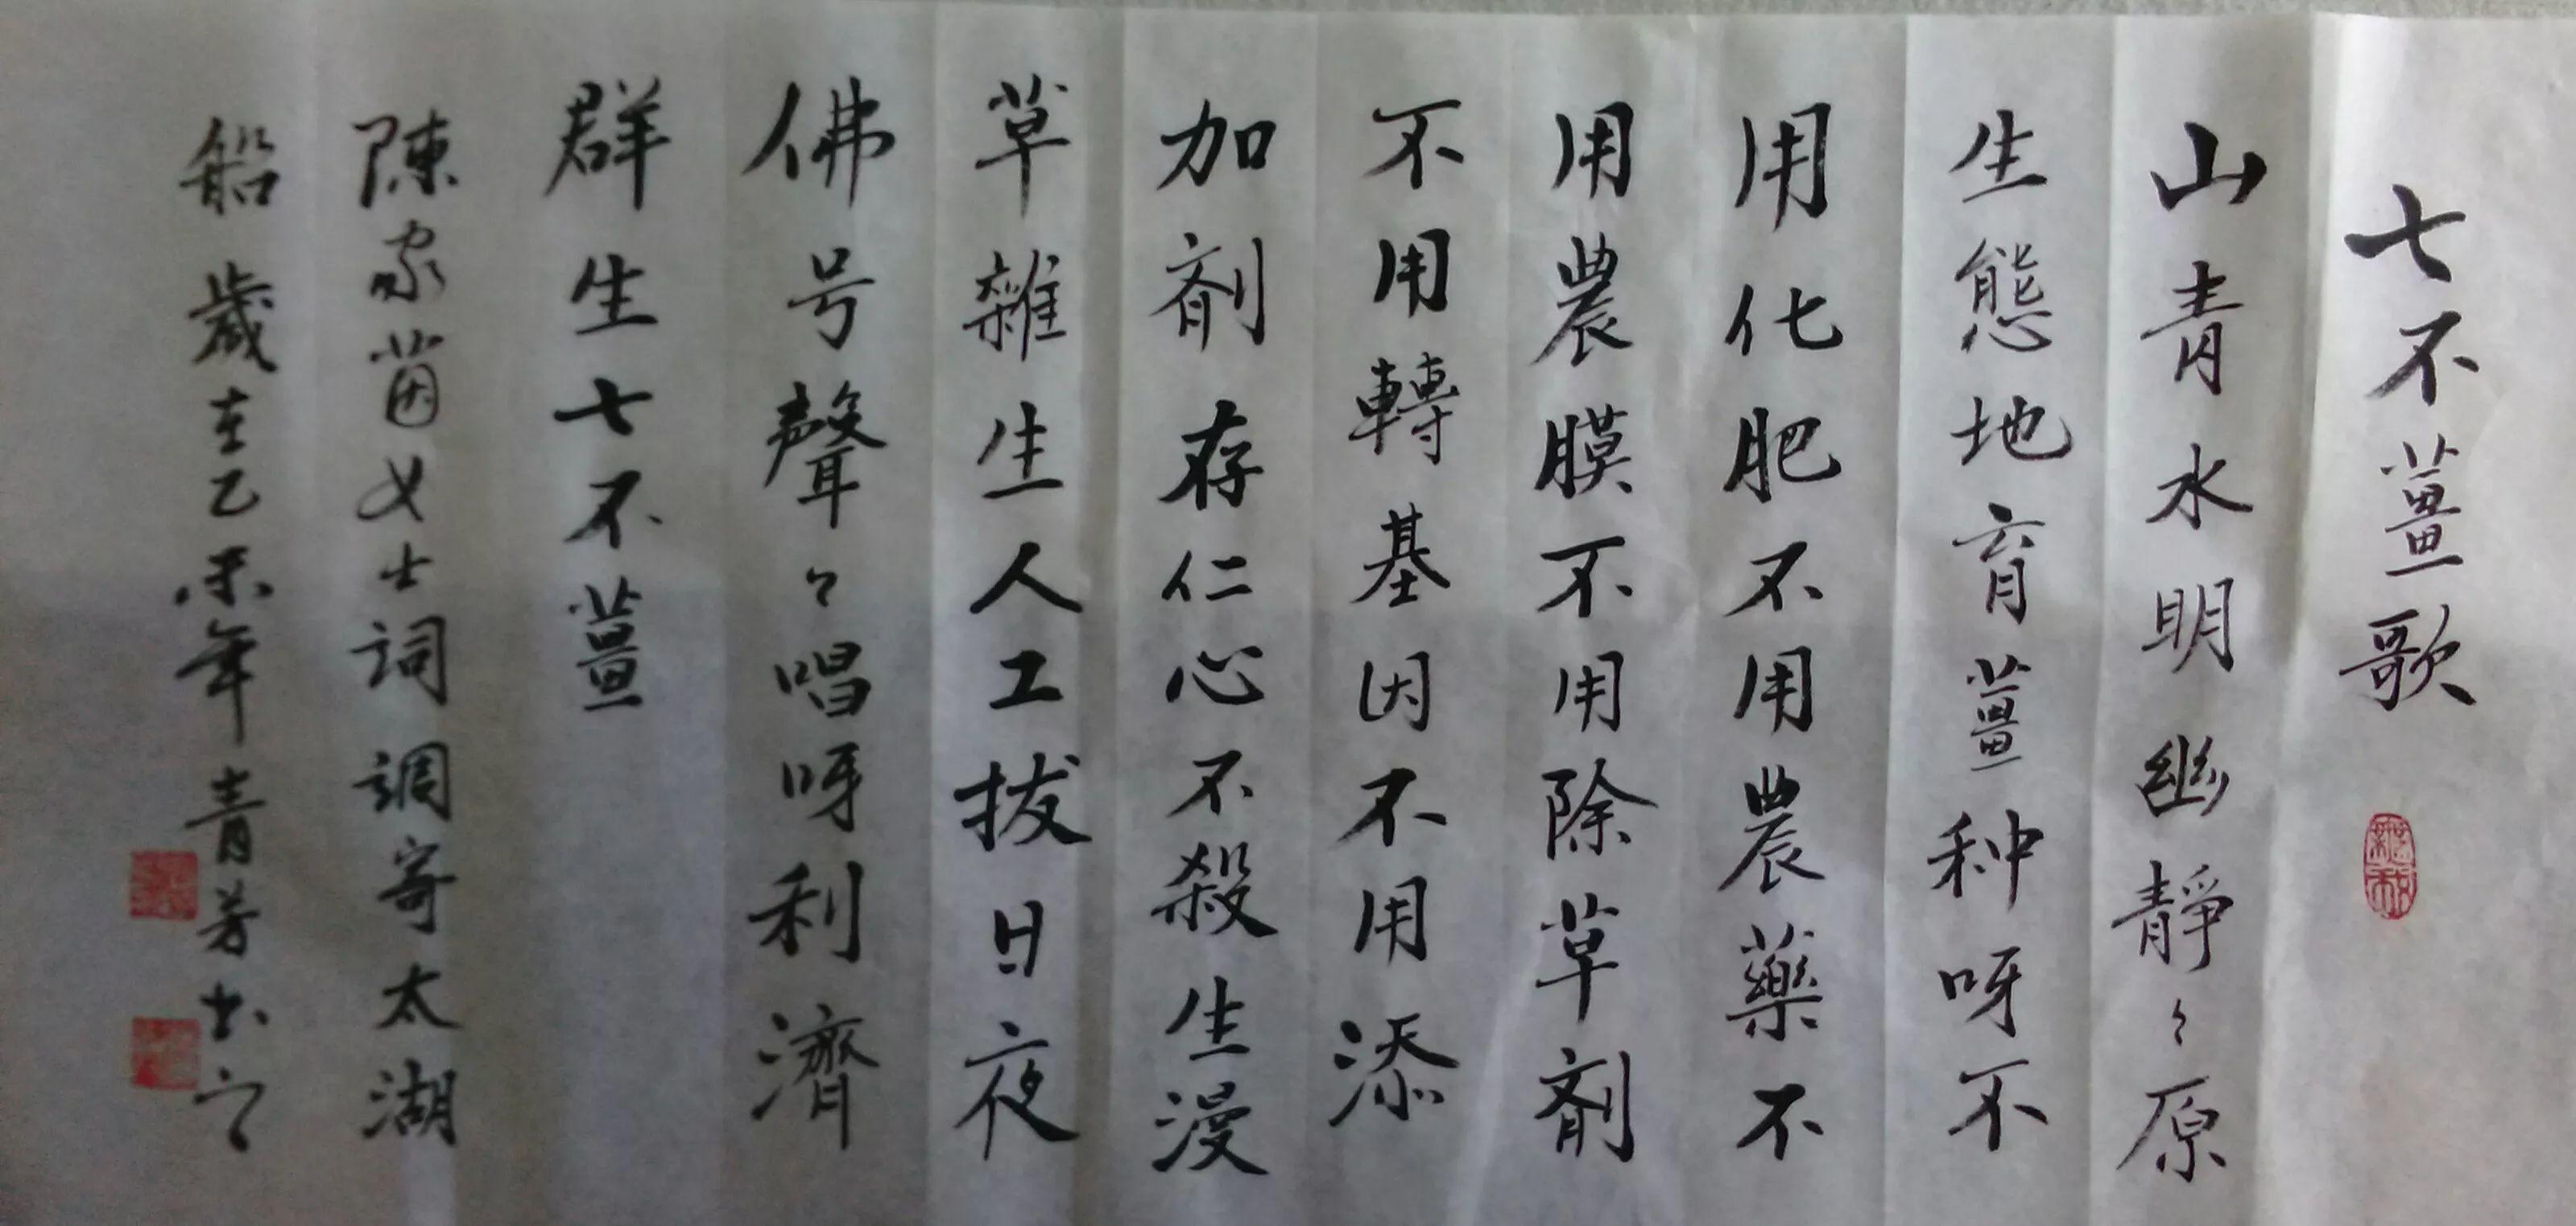 七不薑歌
山青水明幽靜〻原
生態地育薑种呀不
用化肥不用農藥不
用農膜不用除草剂
不用轉基因不用添
加剂存仁心不殺生漫
草雜生人工拔日夜
佛号聲〻唱呀利濟
群生七不薑
陳家茵女士詞調寄太湖
船歲在乙未年青芳书之